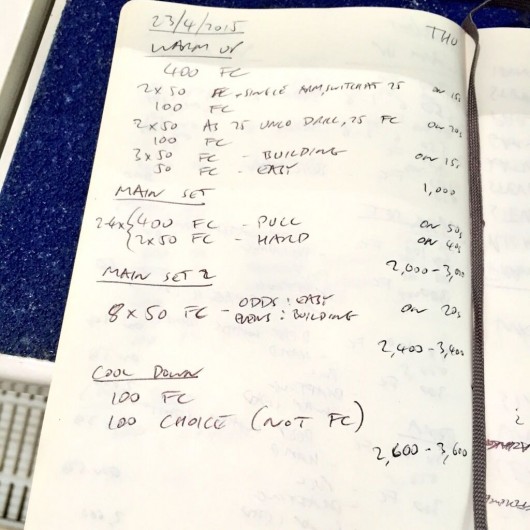 23/4/2015 THU
WARM UP
400 FC
2 x 50 FC - SINGLE ARM, SWITCH AT 25 ON 15s
100 FC
2 x 50 AS 25 UNCO DRILL, 25 FC ON 20s
100 FC
3 x 50 FC - BUILDING ON 15s
50 FC - EASY
1,000
MAIN SET
2-4x { 400 FC - PULL ON 50s
2x50 FC - HARD ON 40s
2,000-3,000
MAIN SET 2
8 x 50 FC - ODDS: EASY ON 20s
EVENS: BUILDING
2,400-3,400
COOL DOWN
100 FC
100 CHOICE (NOT FC)
2,600-3,600